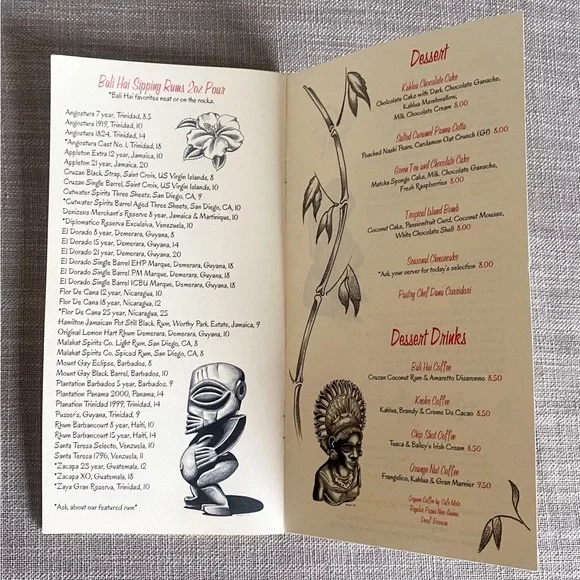 Bali Hai Sipping Rums 2oz Pour
*Bali Hai favorites neat or on the rocks.
Angostura 7 year, Trinidad, 8.5
Angostura 1919, Trinidad, 10
Angostura 1824, Trinidad, 14
*Angostura Cast No. 1, Trinidad, 18
Appleton Extra 12 year, Jamaica, 10
Appleton 21 year, Jamaica, 20
Cruzan Black Strap, Saint Croix, US Virgin Islands, 8
Cruzan Single Barrel, Saint Croix, US Virgin Islands, 10
Cutwater Spirits Three Sheets, San Diego, CA, 9
*Cutwater Spirits Barrel Aged Three Sheets, San Diego, CA, 10
Denizens Merchant's Reserve 8 year, Jamaica & Martinique, 10
*Diplomatico Reserva Exculsiva, Venezuela, 10
El Dorado 8 year, Demerara, Guyana, 8
El Dorado 15 year, Demerara, Guyana, 14
El Dorado 21 year, Demerara, Guyana, 20
El Dorado Single Barrel EHP Marque, Demerara, Guyana, 18
El Dorado Single Barrel PM Marque, Demerara, Guyana, 18
El Dorado Single Barrel ICBU Marque, Demerara, Guyana, 18
Flor De Cana 12 year, Nicaragua, 10
Flor De Cana 18 year, Nicaragua, 12
*Flor De Cana 25 year, 25
Hamilton Jamaican Pot Still Black Rum, Worthy Park, Estate, Jamaica, 9
Original Lemon Hart Rhum Demerara, Demerara, Guyana, 10
Malahat Spirits Co. Light Rum, San Diego, CA, 8
Malahat Spirits Co. Spiced Rum, San Diego, CA, 8
Mount Gay Eclipse, Barbados, 8
Mount Gay Black Barrel, Barbados, 10
Plantation Barbados 5 year, Barbados, 9
Plantation Panama 2000, Panama, 14
Plantation Trinidad 1999, Trinidad, 14
Pusser's, Guyana, Trinidad, 9
Rhum Barbancourt 8 year, Haiti, 10
Rhum Barbancourt 15 year, Haiti, 14
Santa Teresa Selecto, Venezuela, 10
Santa Teresa 1796, Venezuela, 11
*Zacapa 23 year, Guatemala, 12
*Zacapa XO, Guatemala, 18
*Zaya Gran Reserva, Trinidad, 10
*Ask about our featured rum*
Dessert
Kahlua Chocolate Cake
Chokolate Cake with Dark, Chocolate Ganache,
Kahlua Marshmallow,
Milk, Chocolate Cream 8.00
Salted Caramel Panna Cotta
Poached Nashi Pears, Cardamon Oat Crunch (Gf) 8.00
Green Tea and Chocolate Cake
Matcha Sponge Cake, Milk, Chocolate Ganache,
Fresh Raspberries 8.00
Tropical Island Bomb
Coconut Cake, Passionfruit Curd, Coconut Mousse,
White Chocolate Shell 8.00
Seasonal Cheesecake
*Ask your server for today's selection 8.00
Pastry Chef Dana Corridori
Dessert Drinks
Bali Hai Coffee
Cruzan Coconut Rum & Amaretto Disaronno 8.50
Keoke Coffee
Kahlua, Brandy & Creme De Cacao 8.50
Chip Shot Coffee
Tuaca & Bailey's Irish Cream 8.50
Orange Nut Coffee
Frangelico, Kahlua & Gran Marnier 9.50
Organic Coffee by Cafe Moto
Regular, Papua New Guinea